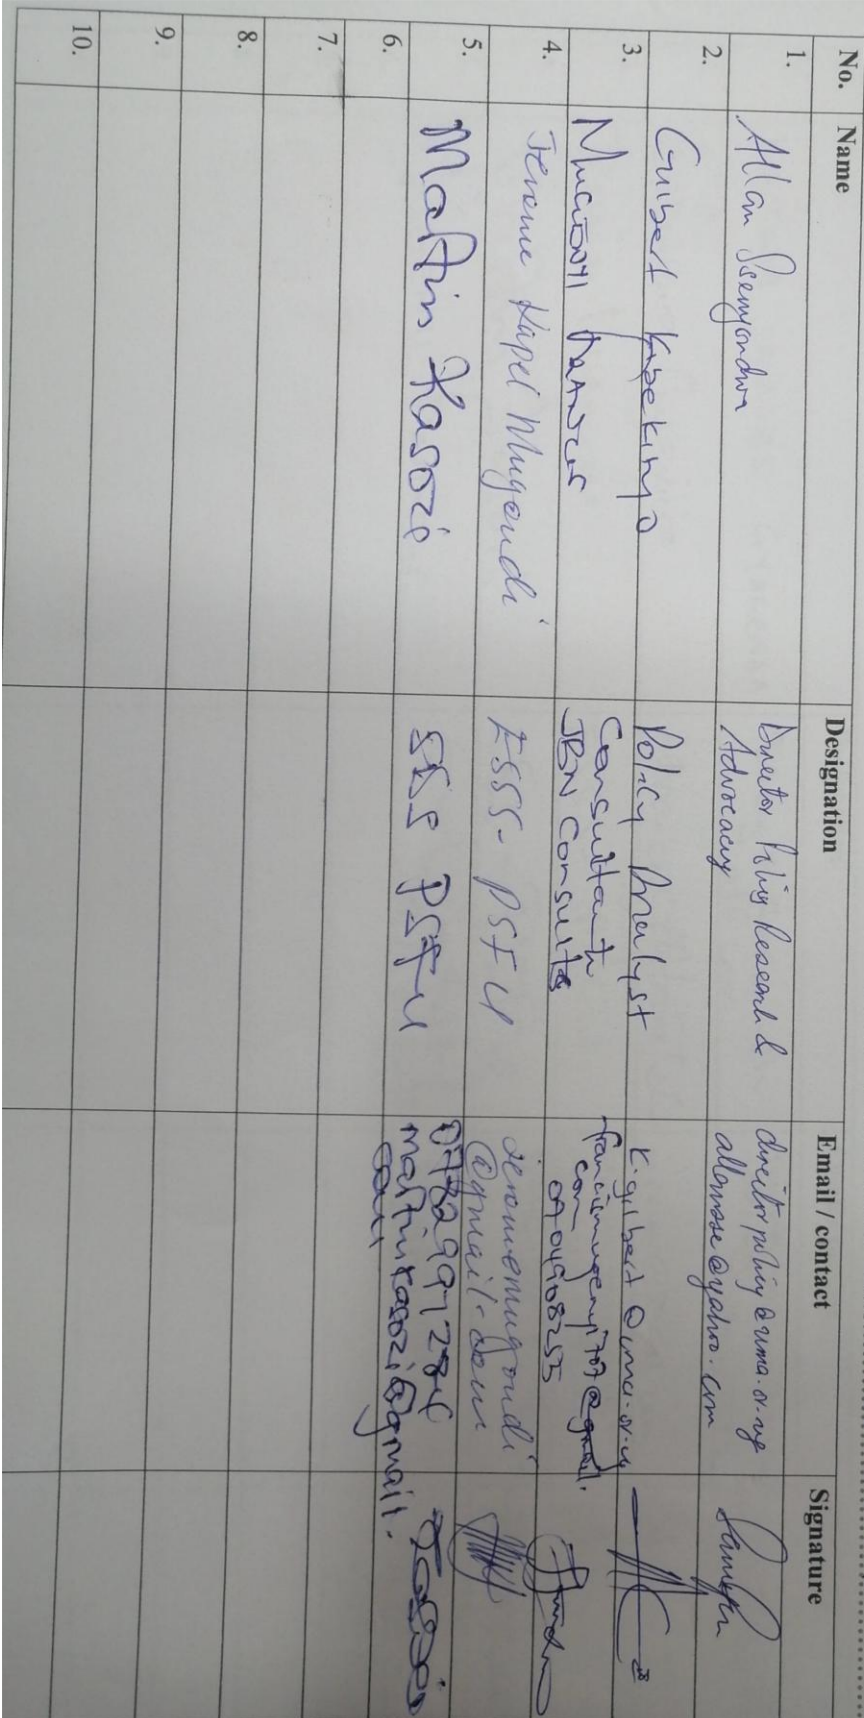 No. Name Designation Email / contact Signature
1. Allan Ssenyondwa Director Policy Research & Advocacy directorpolicy@uma.or.ug
allanase@yahoo.com
2. Guibert Kibekityo Policy Analyst k.gilbert@uma.or.ug
3. MUGENYI FRANCIS Consultant
JBN Consults francismugenyi707@gmail.
com
0704968255
4. Jerome Kapel Mugondi ESSS- PSFU jeromemugondi
@gmail.com
5. Martin Kasozi SSS PSFU 0782997284
martinkasozi@gmail.
com
6.
7.
8.
9.
10.